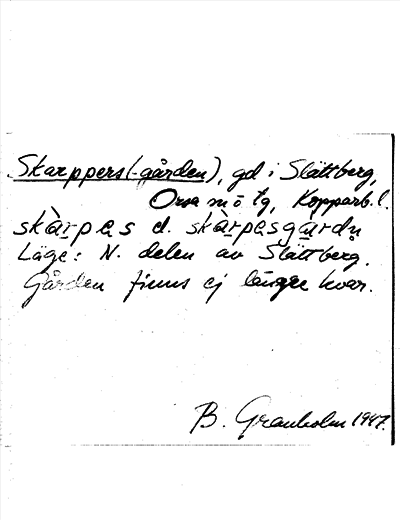 Skarppers(-gården), gd i Slättberg,
Orsa sn o tg, Kopparb.l.
skàrpes el. skàrpesgàrdn
Läge: N. delen av Slättberg.
Gården finns ej längre kvar.
B. Granholm 1947.